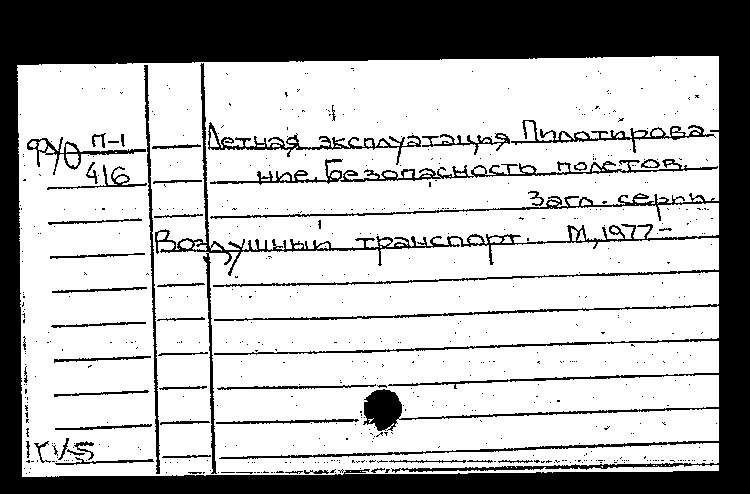 П-1
416
Летная эксплуатация. Пилотирова-
ние. Безопасность полетов.
Загл. серии.
Воздушный транспорт. М, 1977-